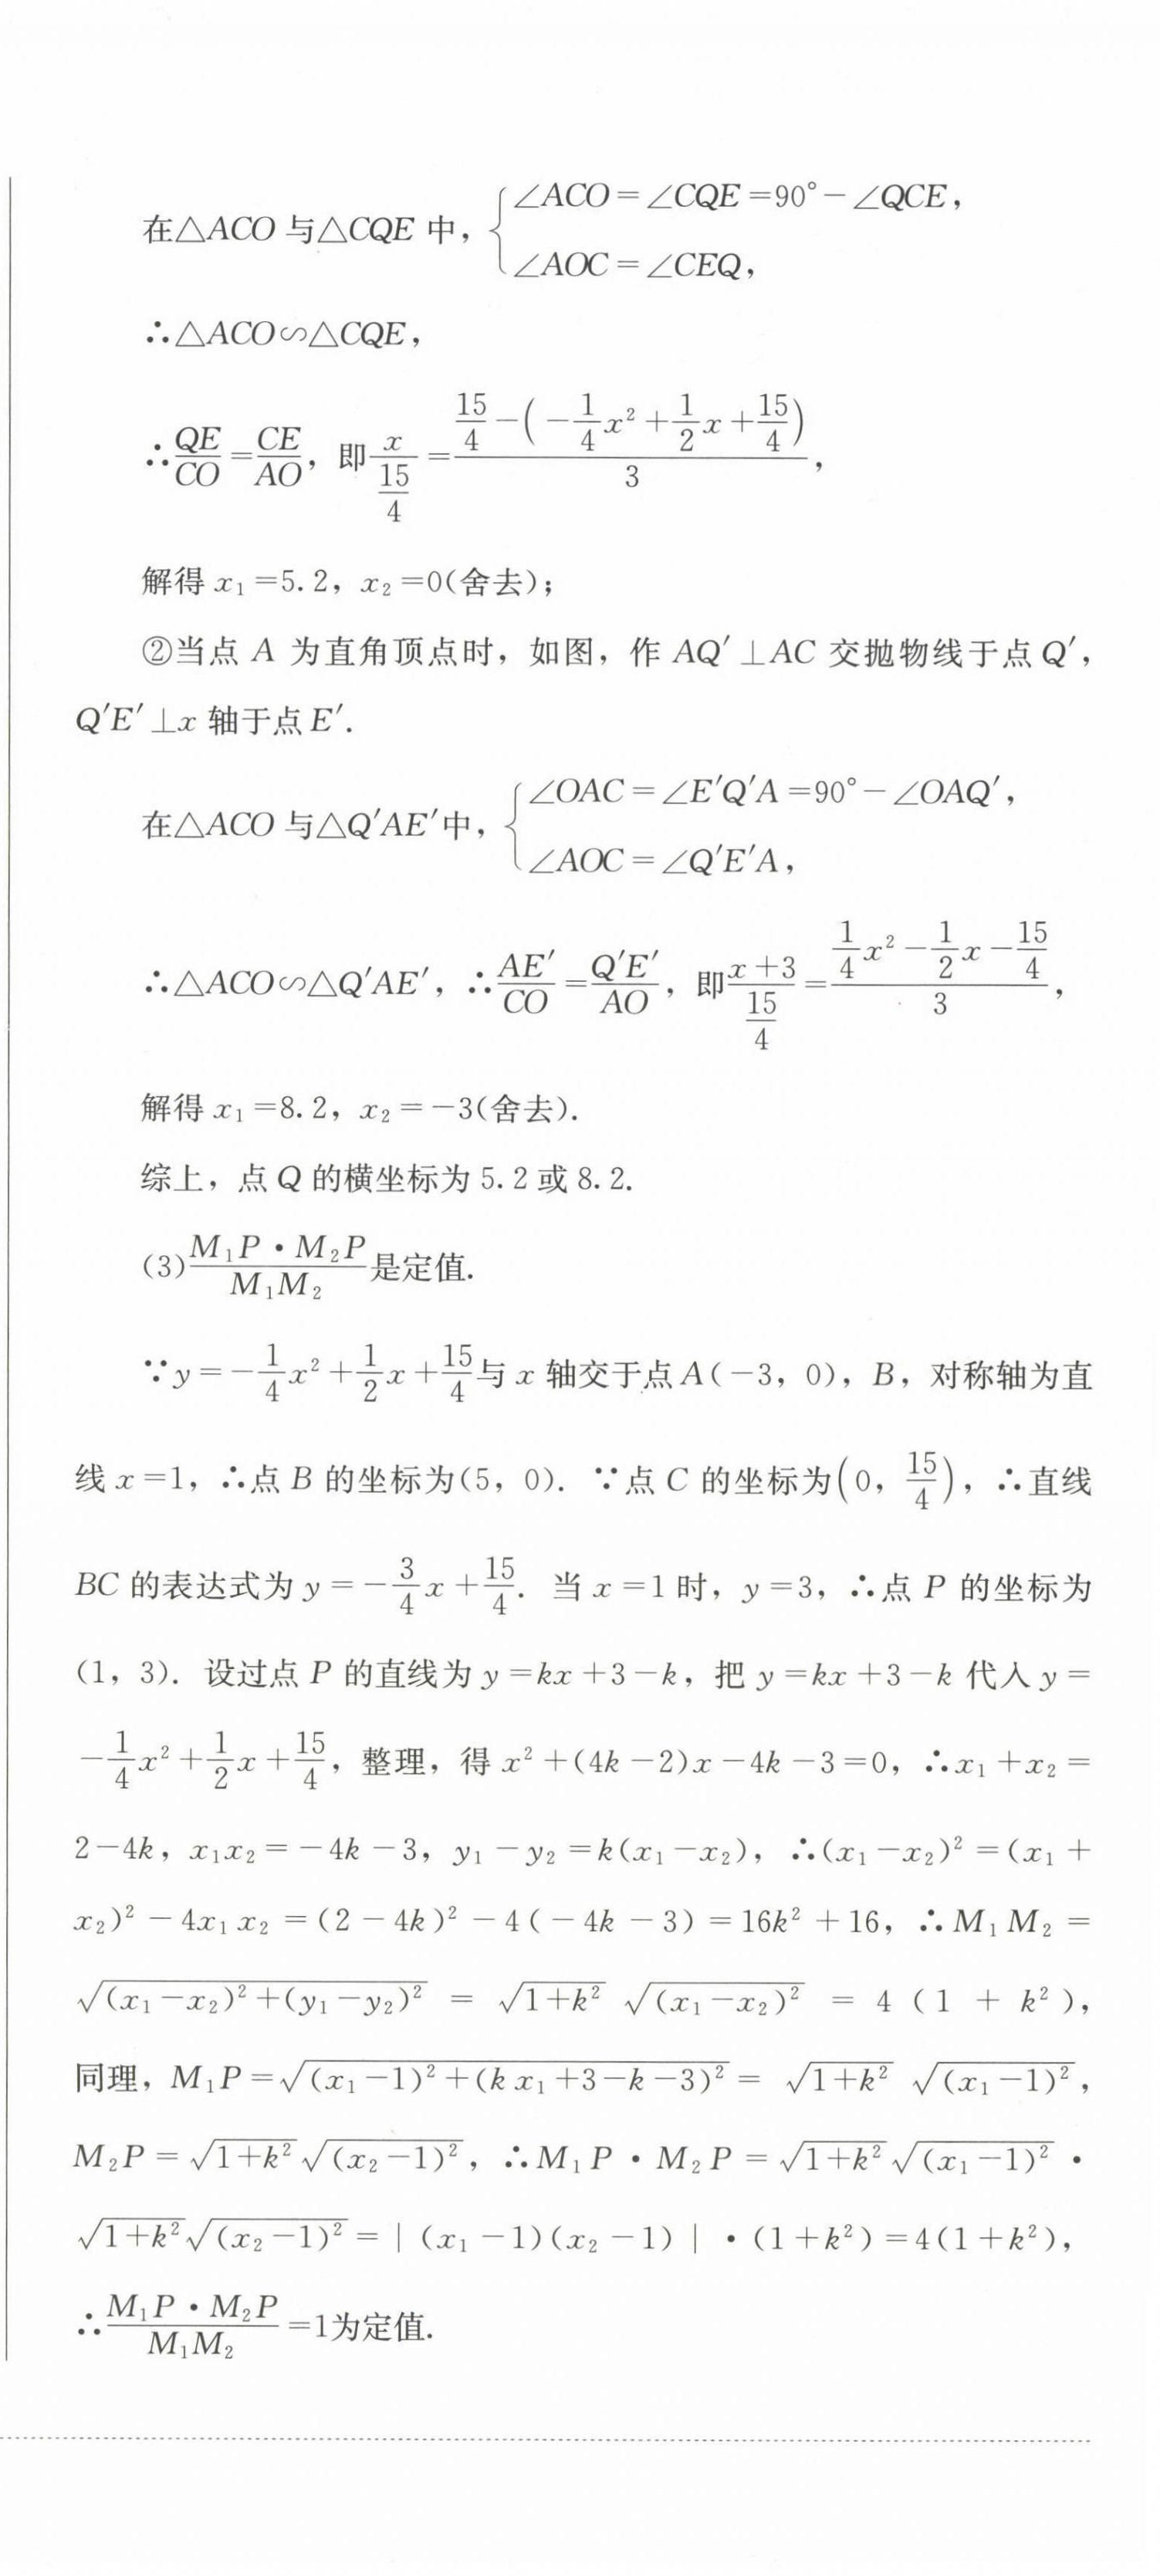 在△ACO 与△CQE 中，{∠ACO=∠CQE=90°−∠QCE，
∠AOC=∠CEQ，
∴△ACO∽△CQE，
∴QE/CO=CE/AO，即x/(15/4)=(15/4−(−1/4x²+1/2x+15/4))/3，
解得 x₁=5.2，x₂=0(舍去)；
②当点 A 为直角顶点时，如图，作 AQ′⊥AC 交抛物线于点 Q′，
Q′E′⊥x 轴于点 E′.
在△ACO 与△Q′AE′中，{∠OAC=∠E′Q′A=90°−∠OAQ′，
∠AOC=∠Q′E′A，
∴△ACO∽△Q′AE′，∴AE′/CO=Q′E′/AO，即(x+3)/(15/4)=(1/4x²−1/2x−15/4)/3，
解得 x₁=8.2，x₂=−3(舍去).
综上，点 Q 的横坐标为 5.2 或 8.2.
(3)(M₁P·M₂P)/(M₁M₂)是定值.
∵y=−1/4x²+1/2x+15/4与 x 轴交于点 A(−3，0)，B，对称轴为直
线 x=1，∴点 B 的坐标为(5，0). ∵点 C 的坐标为(0，15/4)，∴直线
BC 的表达式为 y=−3/4x+15/4. 当 x=1 时，y=3，∴点 P 的坐标为
(1，3). 设过点 P 的直线为 y=kx+3−k，把 y=kx+3−k 代入 y=
−1/4x²+1/2x+15/4，整理，得 x²+(4k−2)x−4k−3=0，∴x₁+x₂=
2−4k，x₁x₂=−4k−3，y₁−y₂=k(x₁−x₂)，∴(x₁−x₂)²=(x₁+
x₂)²−4x₁x₂=(2−4k)²−4(−4k−3)=16k²+16，∴M₁M₂=
√((x₁−x₂)²+(y₁−y₂)²)=√(1+k²)√((x₁−x₂)²)=4(1+k²)，
同理，M₁P=√((x₁−1)²+(kx₁+3−k−3)²)=√(1+k²)√((x₁−1)²)，
M₂P=√(1+k²)√((x₂−1)²)，∴M₁P·M₂P=√(1+k²)√((x₁−1)²)·
√(1+k²)√((x₂−1)²)=|(x₁−1)(x₂−1)|·(1+k²)=4(1+k²)，
∴(M₁P·M₂P)/(M₁M₂)=1为定值.